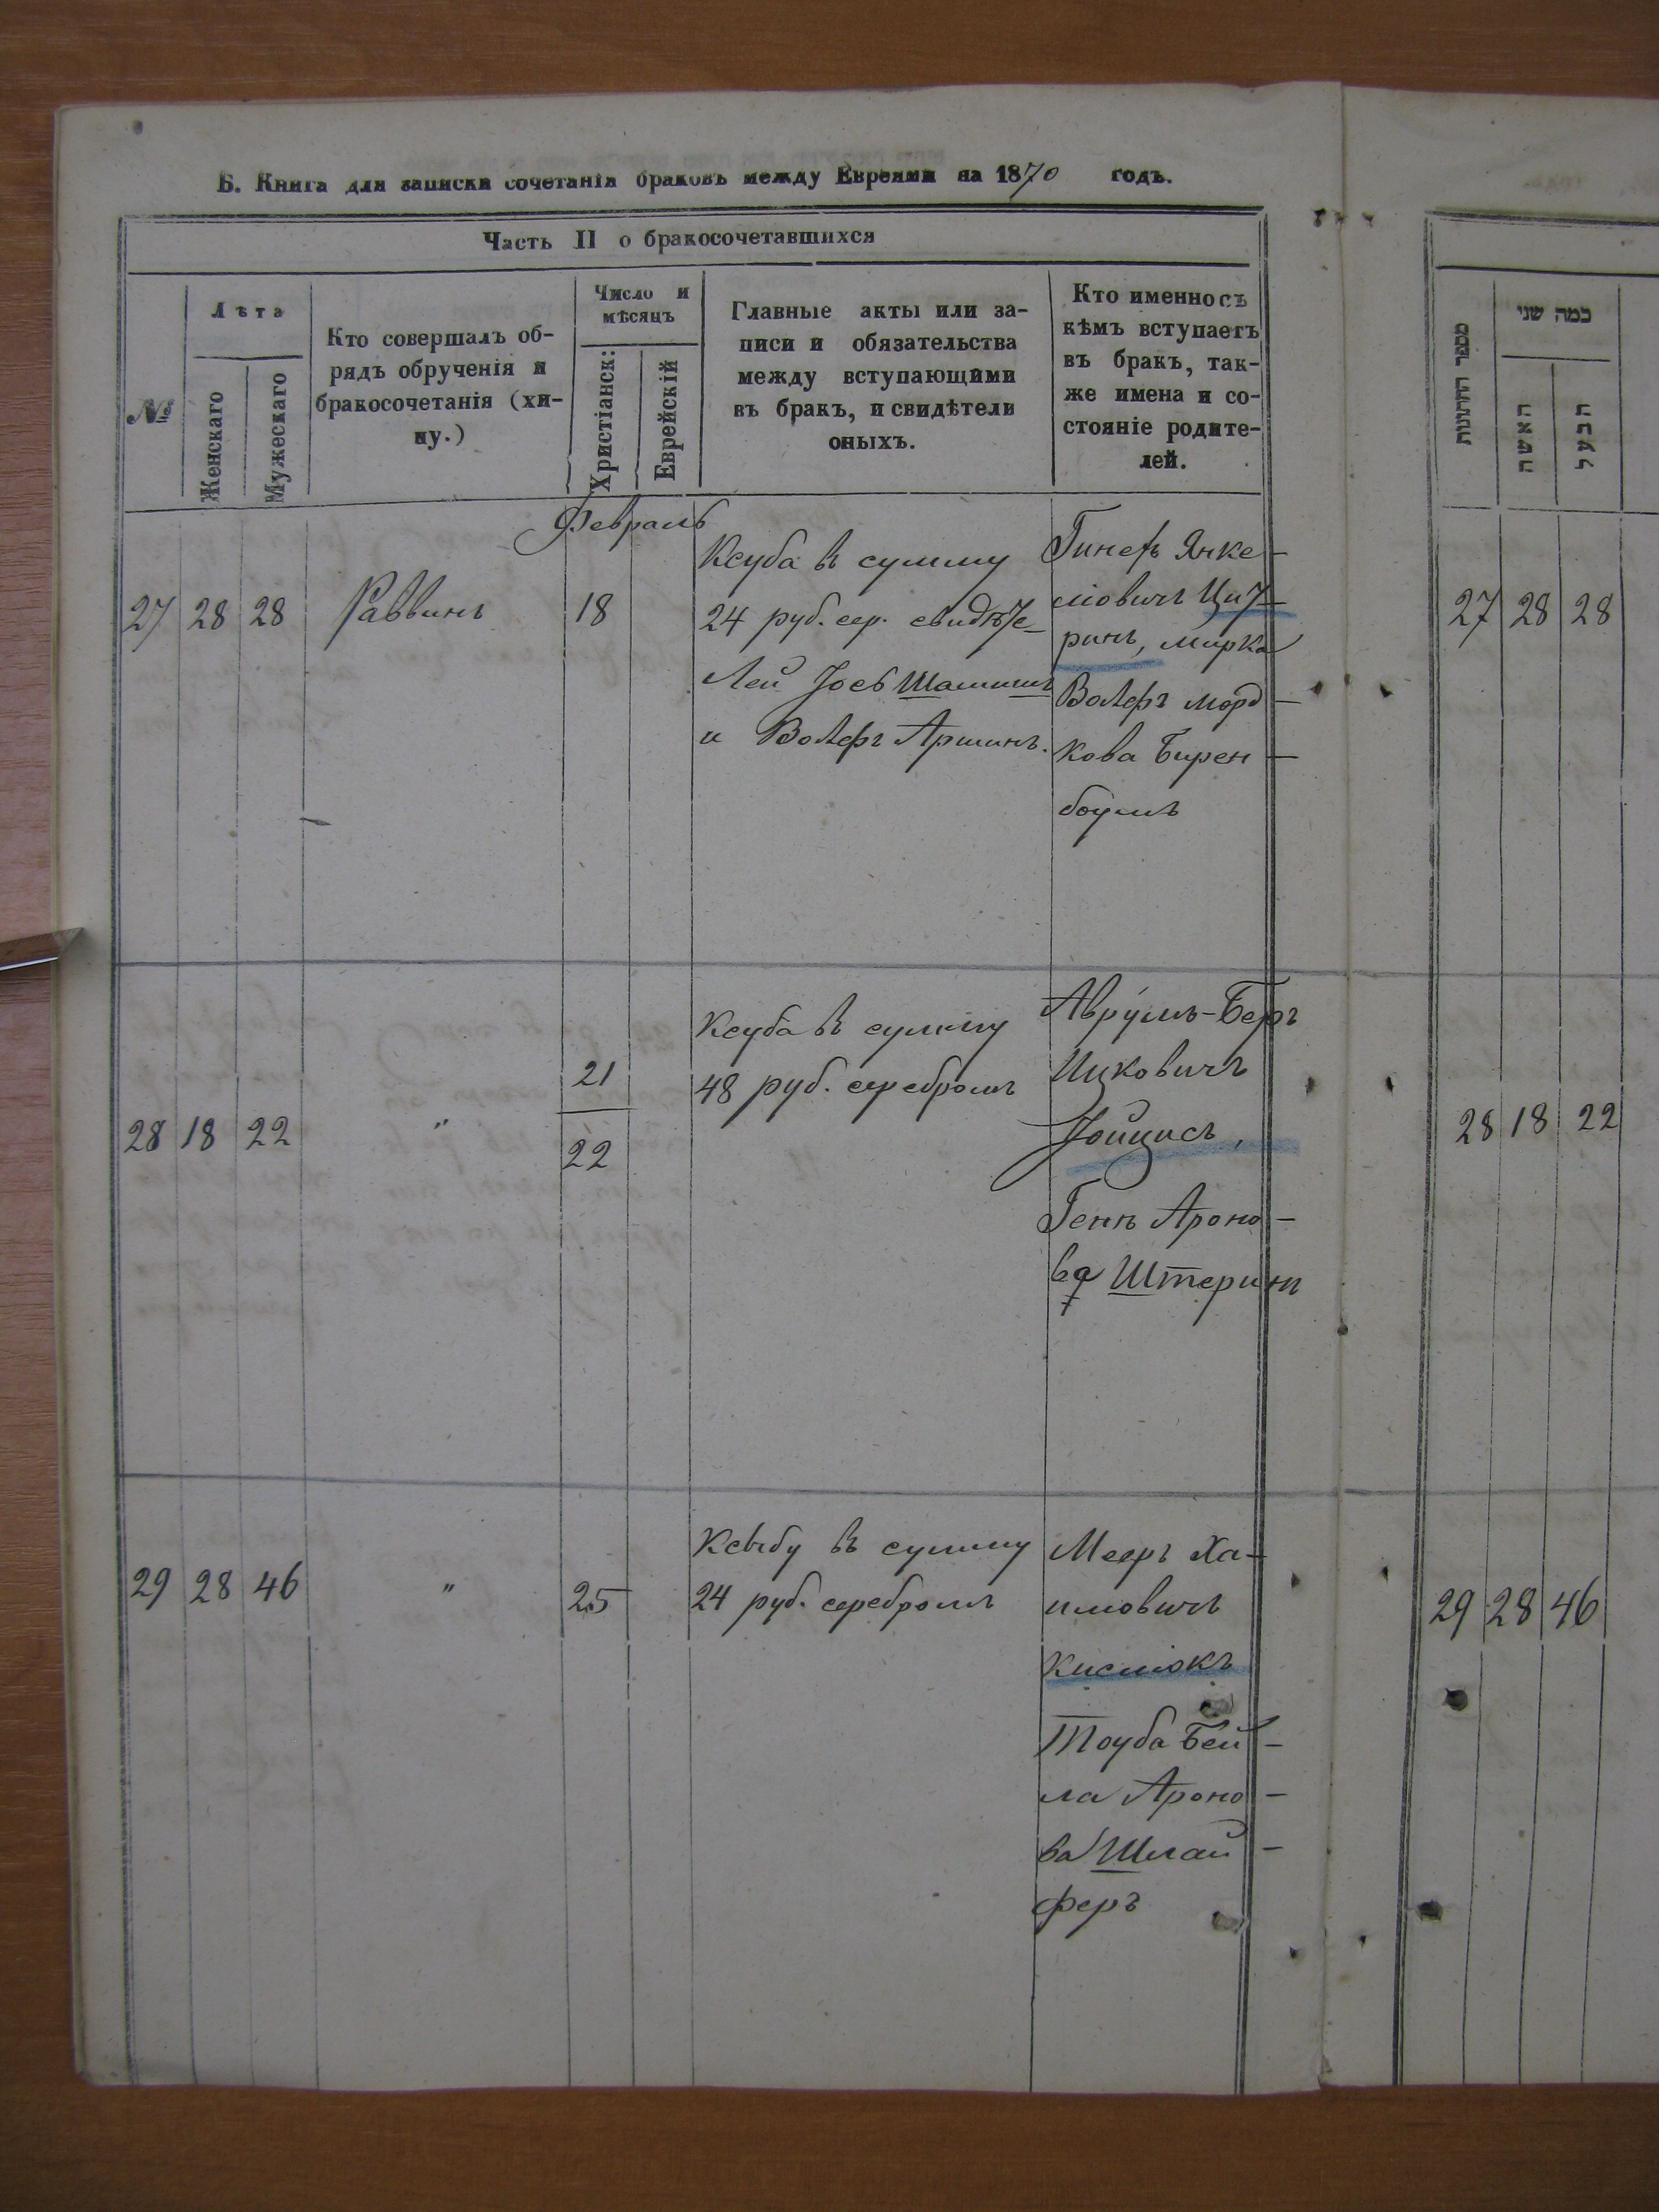 Б. Книга для записки сочетанія браковъ между Евреями на 1870 годъ.
Часть II о бракосочетавшихся
№
Лѣта
Женскаго
Мужескаго
Кто совершалъ об-
рядъ обрученія и
бракосочетанія (хи-
пу.)
Число и
мѣсяцъ
Христіанск:
Еврейскій
Главные акты или за-
писи и обязательства
между вступающими
въ бракъ, и свидѣтели
оныхъ.
Кто именно съ
кѣмъ вступаетъ
въ бракъ, так-
же имена и со-
стояніе родите-
лей.
מספר החתונות
כמה שני
האשה
הבעל
Февраль
27 28 28 Раввинъ 18
Ксуба въ сумму
24 руб. сер. свидѣте-
лей Іосъ Шамишъ
и Волфъ Аршинъ.
Янке-
ліовичъ Цит-
ринъ, Мирка
Волфъ Морд-
кова Бирен-
боумъ
27 28 28
28 18 22 " 21
22
Ксуба въ сумму
48 руб. серебромъ
Аврумъ-Беръ
Ицковичъ
Іойцисъ,
Геня Ароно-
ва Штеринъ
28 18 22
29 28 46 " 25
Ксыбу въ сумму
24 руб. серебромъ
Мееръ Ха-
имовичъ
Кислюкъ
Тоуба Бей-
ла Ароно-
ва Шлай-
феръ
29 28 46